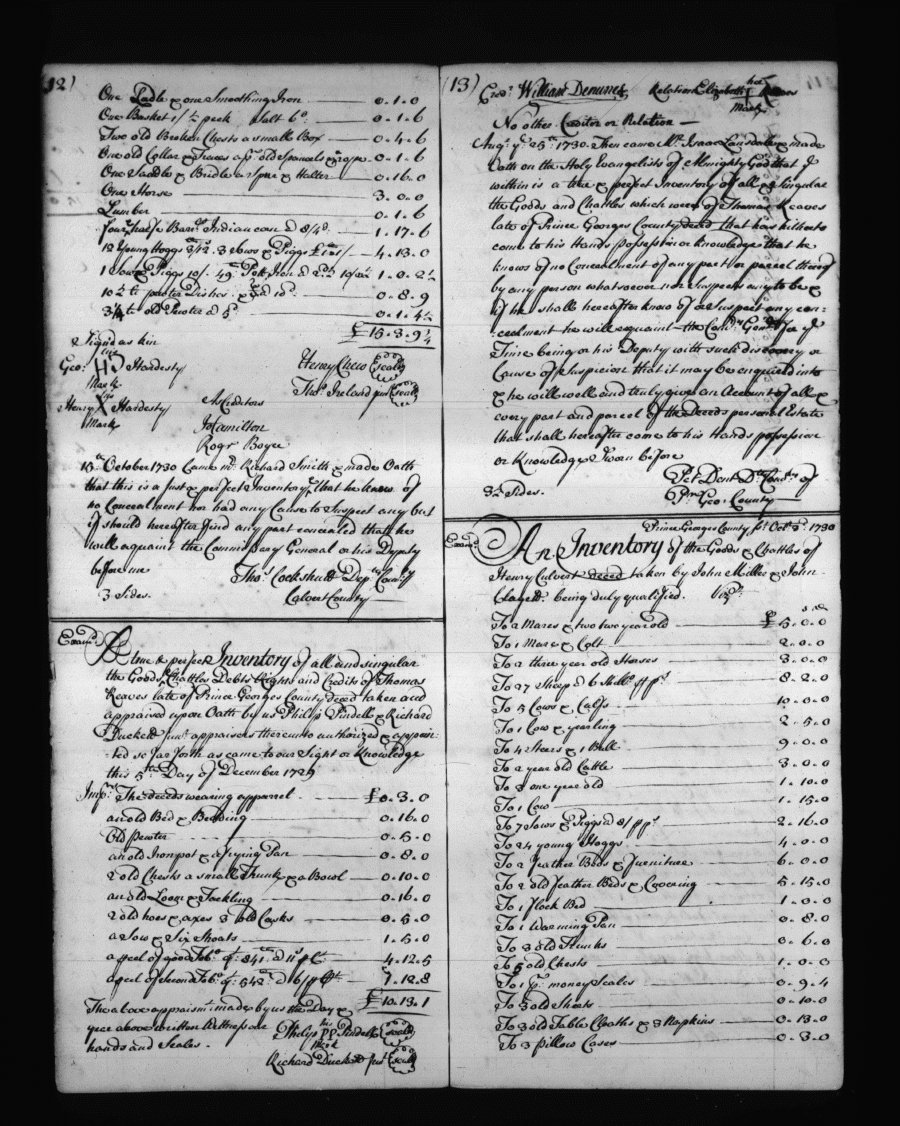 12)
One Ladle & one Smoothing Iron 0.1.0
One Basket 1/ ½ peck Salt 6d. 0.1.6
Two old Broken Chests a small Box 0.4.6
One old Collar & Traces a pr. old & rope 0.1.6
One Saddle & Bridle a Spur & Halter 0.16.0
One Horse 3.0.0
Lumber 0.1.6
four & half Barrs. Indian corn @ 8/4d. 1.17.6
12 Young Hoggs 3 Sows & Piggs 4.13.0
1 Sow & Piggs 10/. 49lb Pott Iron 1.0.2½
10½ lb pewter Dishes 0.8.9
3¾ lb old Pewter @ 5d. 0.1.4½
£15.3.9¼
Signd as kin
Geo: his H Hardesty
Mark
Henry Chew (seal)
Thos. Ireland junr (seal)
Henry his X Hardesty
Mark
As Creditors
J Hamilton
Rogr Boyce
October 1730 Came Mr. Richard Smith & made Oath
that this is a Just & perfect Inventory, that he knows of
no Concealment nor had any Cause to Suspect any but
if should hereafter find any part concealed that he
will aquaint the Commissary General or his Deputy
before me
Thos. Cockshutt Depty Comry
3 Sides.
Calvert County
Examd.
A true & perfect Inventory of all and singular
the Goods, Chattles Debts Rights and Credits of Thomas
Reaves late of Prince Georges County decd taken and
appraised upon Oath by us Philip Tindell & Richard
Duckett junr appraisers thereunto authorized & appoin:
ted so far forth as came to our Sight or Knowledge
this 5th Day of December 1729
Imps. The deceds wearing apparrel £0.3.0
an old Bed & Bedding 0.16.0
Old pewter 0.5.0
an old Iron pot & a frying Pan 0.8.0
2 old Chests a small Trunk & a Bowl 0.10.0
an old Loom & Tackling 0.16.0
2 old hoes & axes 3 old Casks 0.5.0
a Sow & Six Shoats 1.5.0
a pcel of good Tobo. qt. 841 4.12.5
a pcel of second Tobo. qt. 542 1.12.8
£10.13.1
The above appraismt. made by us the Day &
year above written Witness our
hands and Seales.
Philip his PP Tindell (seal)
Mark
Richard Duckett junr (seal)
(13)
Credr. William Denune
Relation Elizabeth her
Mark
No other Creditor or Relation
Augt. ye. 25th 1730. Then came Mr. Isaac Lansdale & made
Oath on the Holy Evangelists of Almighty God that ye
within is a true & perfect Inventory of all & singular
the Goods and Chattles which were of Thomas Reaves
late of Prince Georges County decd that has hitherto
come to his Hands possession or knowledge that he
knows of no Concealment of any part or parcel thereof
by any person whatsoever nor suspects any to be &
if he shall hereafter know of or Suspect any con:
cealment he will aquaint the Comry Genll. for ye
Time being or his Deputy with such discovery or
Cause of Suspicion that it may be enquired into
& he will well and truly give an Account of all &
every part and parcel of the Deceds personal Estate
that shall hereafter come to his Hands possession
or Knowledge Sworn before
Pet. Dent Dty Comry of
3½ Sides.
Prin. Geo. County
Prince Georges County Octr. 1730
Examd.
An Inventory of the Goods & Chattles of
Henry Culvert deced taken by John Miller & John
Clagett. being duly qualified. Vizt.
To 2 Mares & two two year old £5.0.0
To 1 Mare & Colt 2.0.0
To 2 three year old Horses 3.0.0
To 27 Sheep @ 6 Shills. p ps. 8.2.0
To 5 Cows & Calfs 10.0.0
To 1 Cow & yearling 2.5.0
To 4 Steers & 1 Bull 9.0.0
To 2 year old Cattle 3.0.0
To 3 one year old 1.10.0
To 1 Cow 1.15.0
To 7 Sows & Piggs @ 8/ p ps. 2.16.0
To 24 young Hoggs 4.0.0
To 2 Feather Beds & Furniture 6.0.0
To 2 old feather Beds & Covering 5.15.0
To 1 flock Bed 1.0.0
To 1 Warming Pan 0.8.0
To 3 old Trunks 0.6.0
To 5 old Chests 1.0.0
To 1 pr. money Scales 0.9.4
To 5 old Sheets 0.10.0
To 3 old Table Cloaths & 3 Napkins 0.13.0
To 3 Pillow Cases 0.3.0